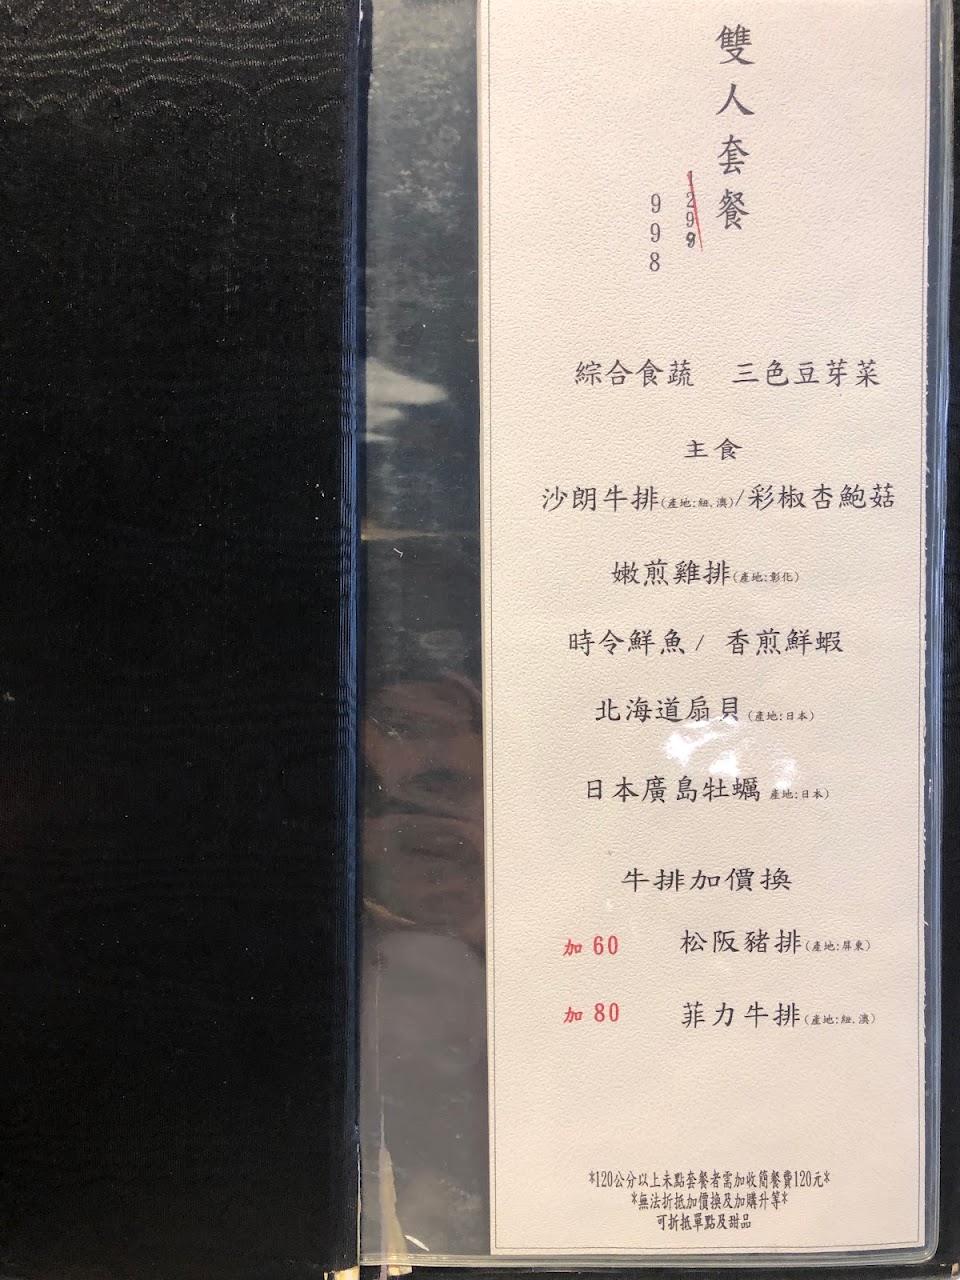 雙人套餐
1299
998
綜合食蔬 三色豆芽菜
主食
沙朗牛排(產地:紐.澳)/彩椒杏鮑菇
嫩煎雞排(產地:彰化)
時令鮮魚/ 香煎鮮蝦
北海道扇貝(產地:日本)
日本廣島牡蠣 產地:日本)
牛排加價換
加60 松阪豬排(產地:屏東)
加80 菲力牛排(產地:紐.澳)
*120公分以上未點套餐者需加收簡餐費120元*
*無法折抵加價換及加購升等*
可折抵單點及甜品